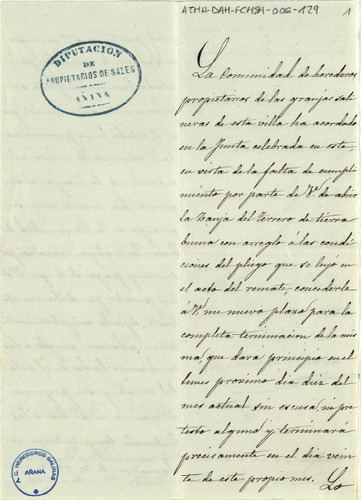 ATHA-DAH-FCHSA-006-129
1
DIPUTACION
DE
PROPIETARIOS DE SALES
AÑANA
La Comunidad de herederos
propietarios de las granjas sali
neras de esta villa ha acordado
en la Junta celebrada en este,
en vista de la falta de cumpli
miento por parte de Vd. de abrir
la Zanja del Terrero de tierra
buena con arreglo á las condi
ciones del pliego que se leyó en
el acto del remate, concederle
á Vd. un nuevo plazo para la
completa terminacion de la mis
ma, que dara principio en el
lunes proximo dia diez del
mes actual sin escusa, ni pre
testo alguno y terminará
precisamente en el dia vein
te de este propio mes. Lo
A.C. HEREDEROS SALINAS
AÑANA